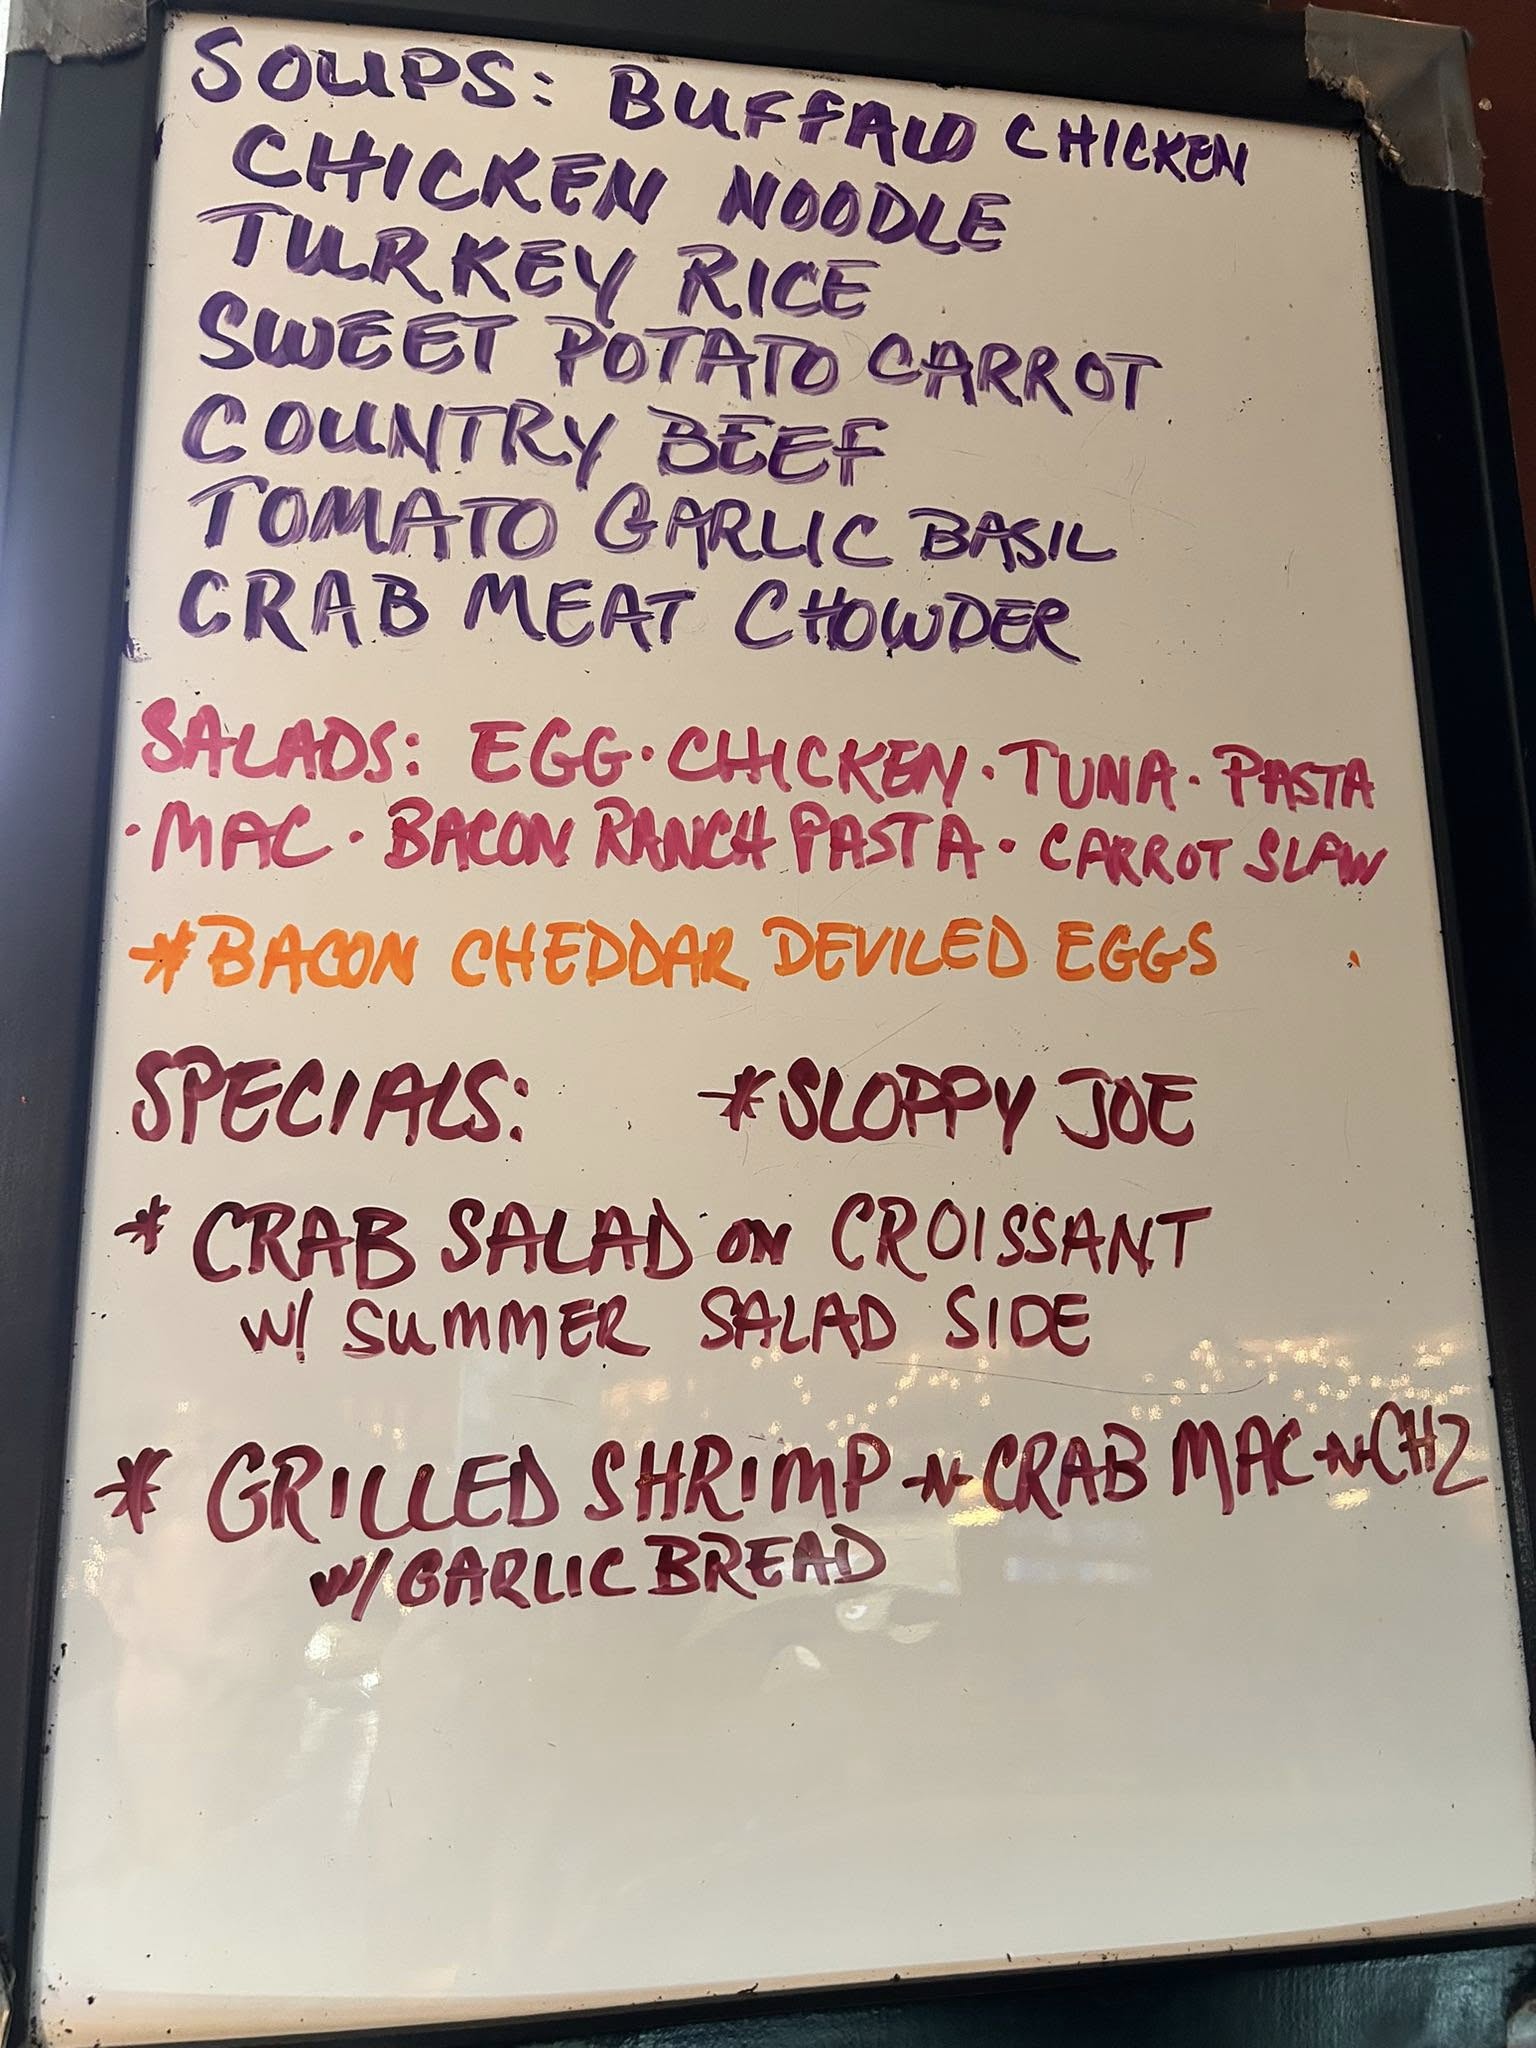 SOUPS: BUFFALO CHICKEN
CHICKEN NOODLE
TURKEY RICE
SWEET POTATO CARROT
COUNTRY BEEF
TOMATO GARLIC BASIL
CRAB MEAT CHOWDER
SALADS: EGG · CHICKEN · TUNA · PASTA
· MAC · BACON RANCH PASTA · CARROT SLAW
*BACON CHEDDAR DEVILED EGGS
SPECIALS: *SLOPPY JOE
* CRAB SALAD ON CROISSANT
W/ SUMMER SALAD SIDE
* GRILLED SHRIMP -N- CRAB MAC -N- CHZ
W/ GARLIC BREAD